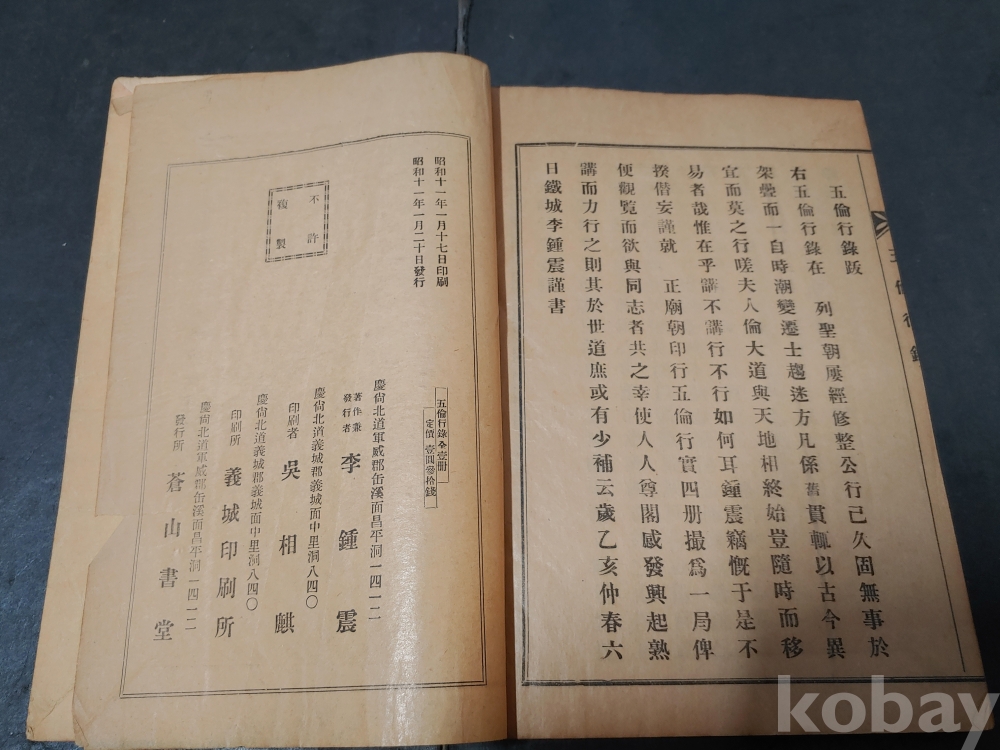 五倫行錄
五倫行錄跋
右五倫行錄在 列聖朝屢經修整公行已久固無事於
架疊而一自時潮變遷士趨迷方凡係舊貫輒以古今異
宜而莫之行嗟夫人倫大道與天地相終始豈隨時而移
易者哉惟在乎講不講行不行如何耳鍾震竊慨于是不
揆僭妄謹就 正廟朝印行五倫行實四册撮爲一局俾
便觀覽而欲與同志者共之幸使人人尊閣感發興起熟
講而力行之則其於世道庶或有少補云歲乙亥仲春六
日鐵城李鍾震謹書
五倫行錄全壹册
定價 壹圓參拾錢
昭和十一年一月十七日印刷
昭和十一年一月二十日發行
不許
複製
慶尙北道軍威郡缶溪面昌平洞一四一二
著作兼
發行者 李鍾震
慶尙北道義城郡義城面中里洞八四〇
印刷者 吳相麒
慶尙北道義城郡義城面中里洞八四〇
印刷所 義城印刷所
慶尙北道軍威郡缶溪面昌平洞一四一二
發行所 蒼山書堂
kobay